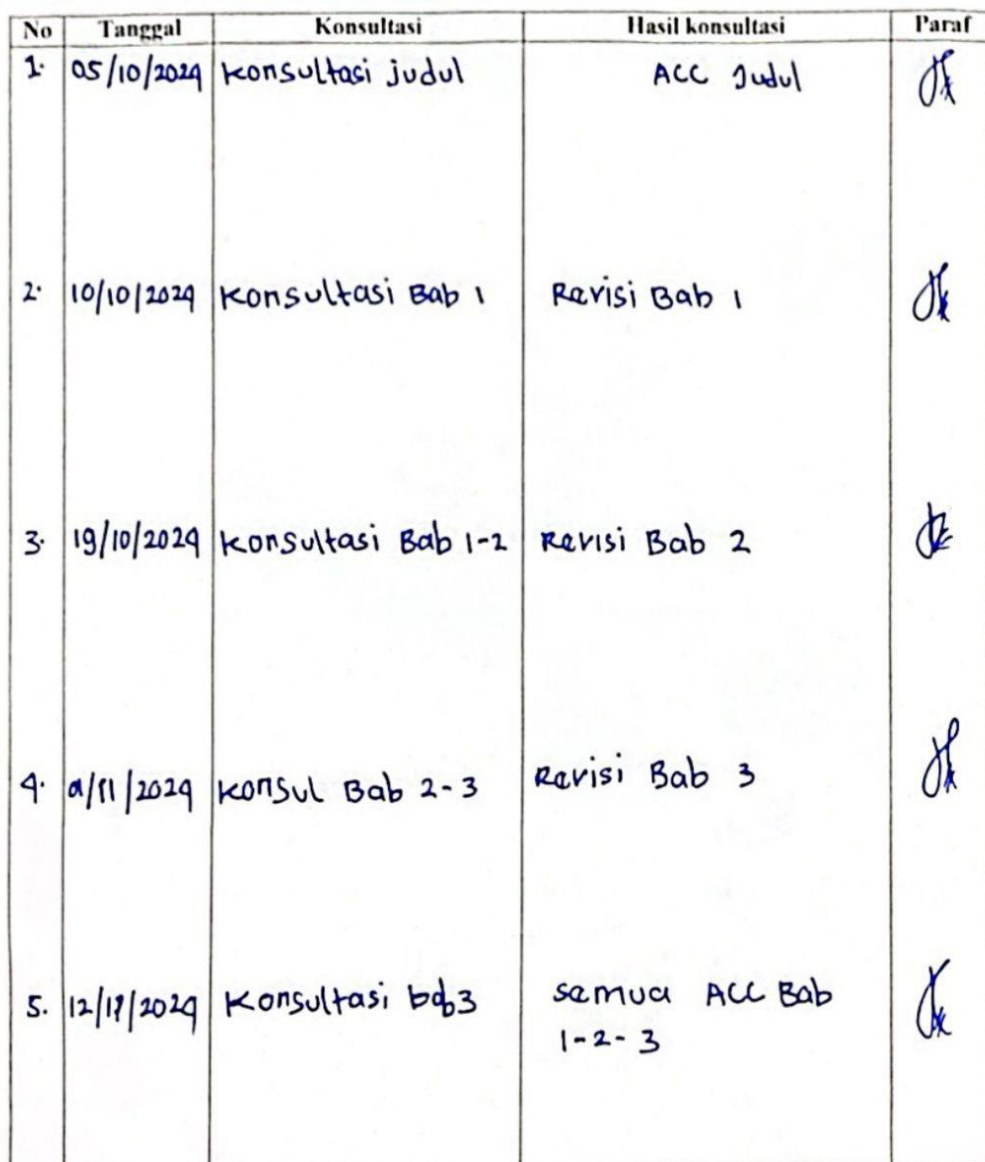 No Tanggal Konsultasi Hasil konsultasi Paraf
1. 05/10/2024 Konsultasi judul ACC Judul
2. 10/10/2024 Konsultasi Bab 1 Revisi Bab 1
3. 19/10/2024 Konsultasi Bab 1-2 Revisi Bab 2
4. /11/2024 Konsul Bab 2-3 Revisi Bab 3
5. Konsultasi bab3 semua ACC Bab
1-2-3